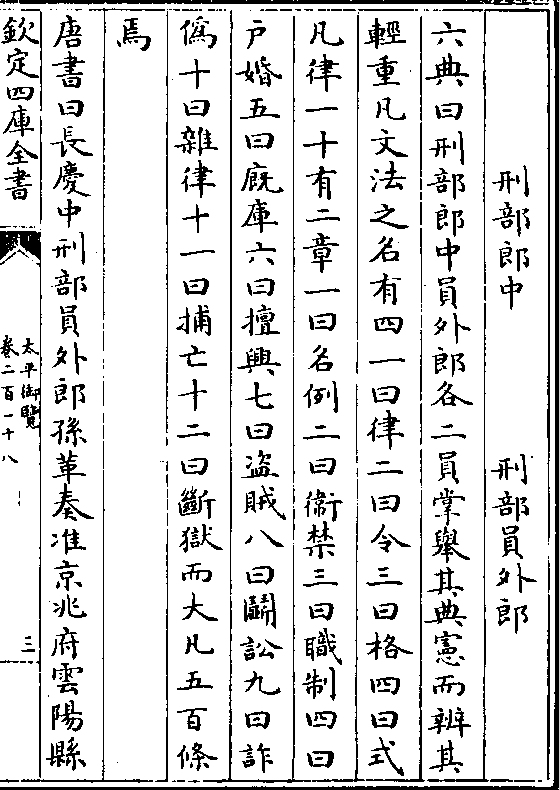 刑部郎中　刑部員外郎
六典曰刑部郎中員外郎各二員掌舉其典憲而辨其
輕重凡文法之名有四一曰律二曰令三曰格四曰式
凡律一十有二章一曰名例二曰衛禁三曰職制四曰
戶婚五曰廐庫六曰擅興七曰盜賊八曰鬭訟九曰詐
僞十曰雜律十一曰捕亡十二曰斷獄而大凡五百條
焉
唐書曰長慶中刑部員外郎孫革奏准京兆府雲陽縣
欽定四庫全書
太平御覽
卷二百一十八
三